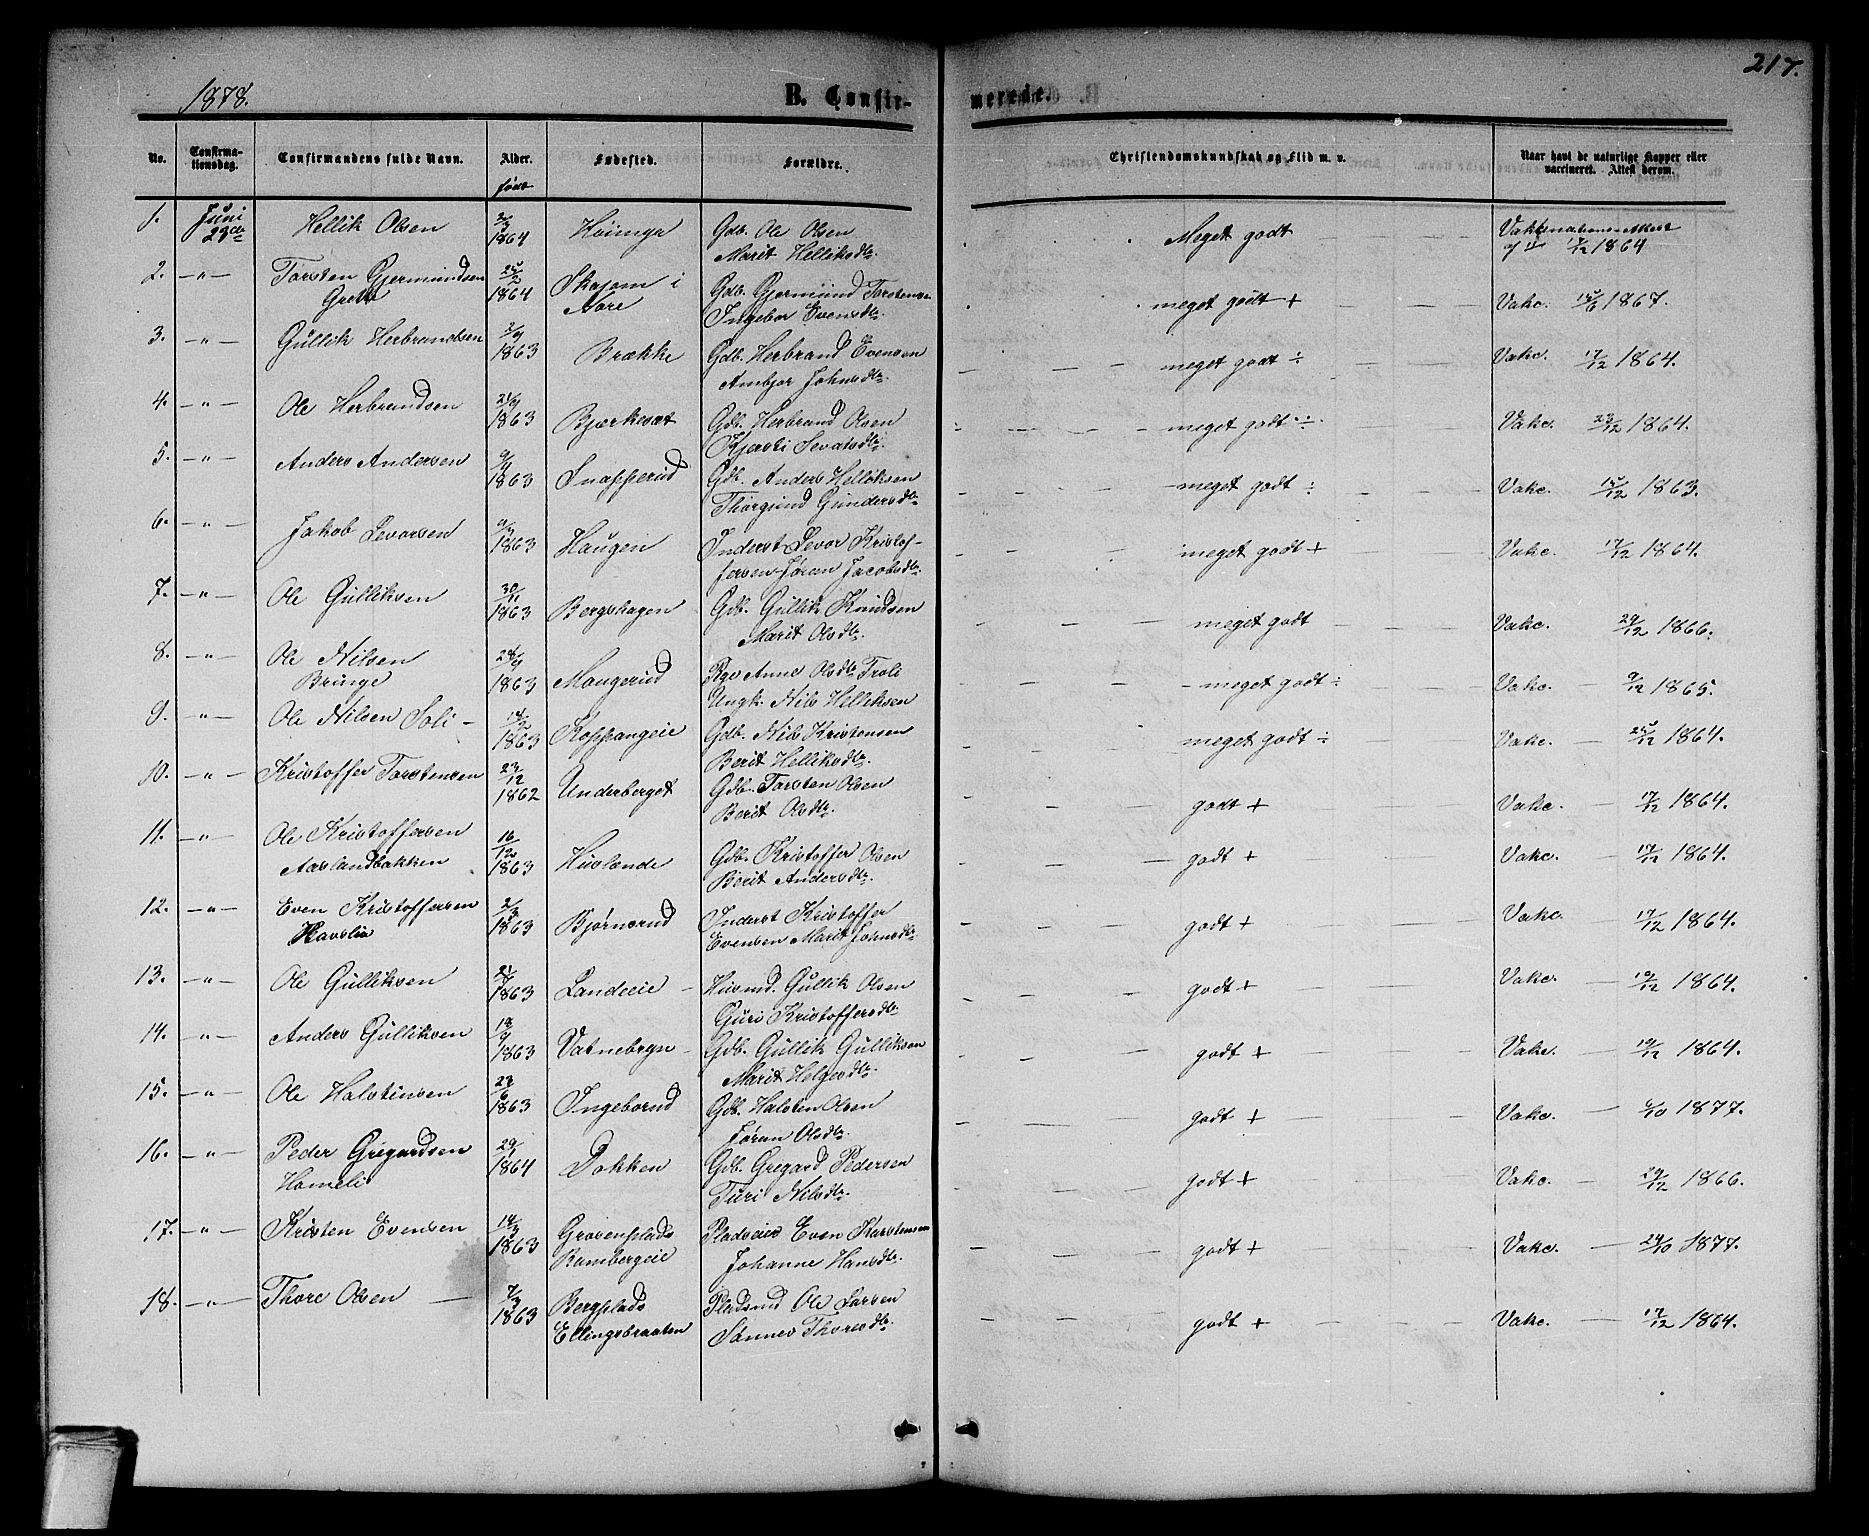 217.
1878. B. Confirmerede.
No. Confirmationsdag. Confirmandens fulde Navn. Alder. født Fødested. Forældre. Christendomskundskab og Flid m. v. Naar havt de naturlige Kopper eller vaccineret. Attest derom.
1. Juni 23de Hellik Olsen 1864 Gdb. Ole Olsen Marit Helliksdtr. Meget godt 1864
2. —"— Torsten Gjermundsen 1864 i Nore Gdb. Gjermund Torstensen Ingebor Evensdtr. meget godt + Vakc. 1867.
3. —"— Gullik Herbrandsen 1863 Brække Gdb. Herbrand Evensen Ambjør Johnsdtr. meget godt ÷ Vakc. 17/12 1864.
4. —"— Ole Herbrandsen 21/9 1863 Bjerkesæt Gdb. Herbrand Olsen Kjersti Sevatsdtr. meget godt ÷ Vakc. 1864.
5. —"— Anders Andersen 1863 Snapperud Gdb. Anders Helliksen Thorgund Gundersdtr. meget godt ÷ Vakc. 1863.
6. —"— Jakob Levorsen 1863 Haugen Inderst Levor Kristoffersen Jøran Jacobsdtr. meget godt + Vakc. 17/12 1864.
7. —"— Ole Gulliksen 30/11 1863 Bergshagen Gdb. Gullik Knudsen Marit Olsdtr. meget godt Vakc. 29/12 1866.
8. —"— Ole Nilsen Bringe 1863 Maugerud Pge Anne Olsdtr. Troli Ungk. Nils Helliksen meget godt ÷ Vakc. 9/12 1865.
9. —"— Ole Nilsen Soli — 1863 Koppangeie Gdb. Nils Kristensen Berit Helliksdtr. meget godt ÷ Vakc. — 1864.
10. —"— Kristoffer Torstensen 23/12 1862 Underberget Gdb. Torsten Olsen Berit Olsdtr. godt + Vakc. — 17/12 1864.
11. —"— Ole Kristoffersen Aaslandbakken 16/12 1863 Huslende Gdb. Kristoffer Olsen Berit Andersdtr. godt + Vakc. — 17/12 1864.
12. —"— Even Kristoffersen Havslie 2/3 1863 Bjørnerud Inderst Kristoffer Evensen Marit Johnsdtr. godt + Vakc. 17/12 1864.
13. —"— Ole Gulliksen 1863 Landeeie — Husmd. Gullik Olsen Guri Kristoffersdtr. godt + Vakc. 19/12 1864.
14. —"— Anders Gulliksen 1863 Vatnebryn — Gdb. Gullik Gulliksen Marit Helgesdtr. godt + Vakc. — 19/12 1864.
15. —"— Ole Halstensen 23/6 1863 Ingeborud Gdb. Halsten Olsen Jøran Olsdtr. godt + Vakc. — 6/10 1877.
16. —"— Peder Gregardsen Hameli 1864 Dokken Gdb. Gregard Pedersen Turi Nilsdtr. godt + Vakc. 29/12 1866.
17. —"— Kristen Evensen 14/3 1863 Grosenplads Rambergeie Pladseier Even Karstensen Johanne Hansdtr. godt + Vakc. — 24/10 1877.
18. —"— Thore Olsen — 7/3 1863 Bergplads Ellingsbraaten Pladsmd Ole Larsen Sannes Thoresdtr. godt + Vakc. — 17/12 1864.